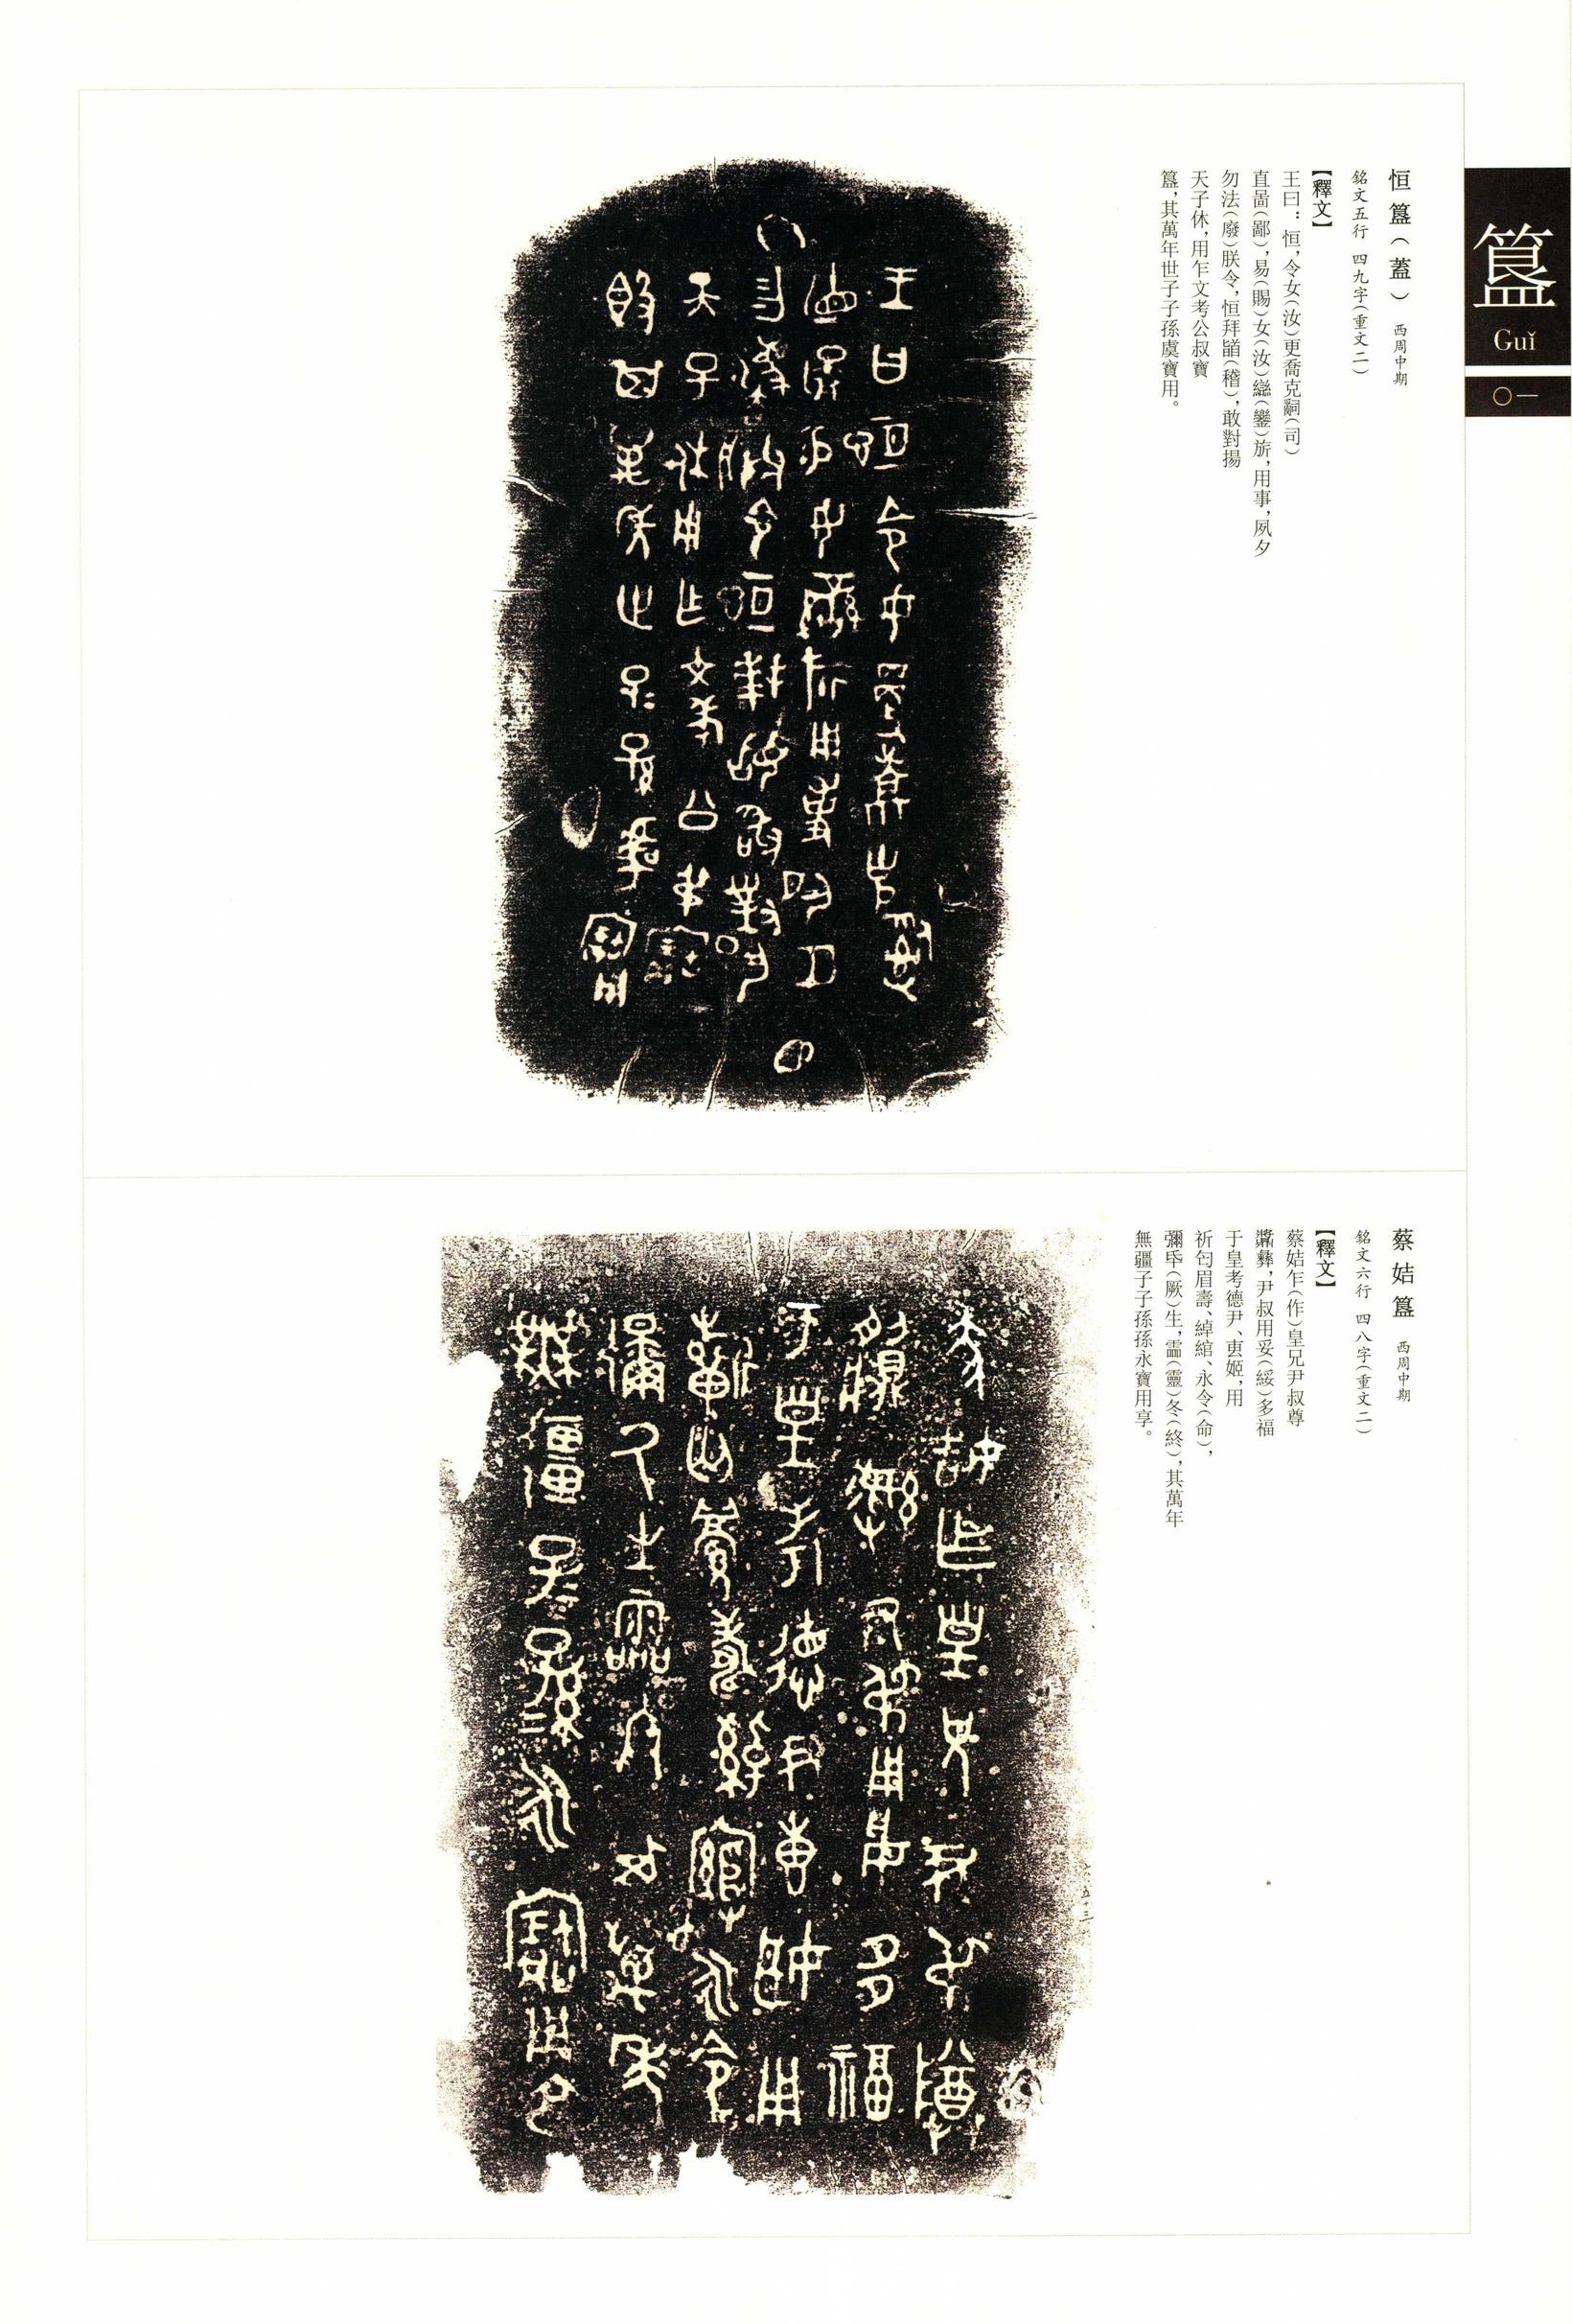 簋
Guǐ
〇一
恒簋（蓋） 西周中期
銘文五行 四九字（重文二）
【釋文】
王曰：恒，令女（汝）更喬克嗣（司）
直啚（鄙），易（賜）女（汝）䜌（鑾）旂，用事，夙夕
勿法（廢）朕令，恒拜䭫（稽），敢對揚
天子休，用乍文考公叔寶
簋，其萬年世子子孫虞寶用。
蔡姞簋 西周中期
銘文六行 四八字（重文二）
【釋文】
蔡姞乍（作）皇兄尹叔尊
𩰫彝，尹叔用妥（綏）多福
于皇考德尹、叀姬，用
祈匄眉壽、綽綰、永令（命），
彌氒（厥）生，霝（靈）冬（終），其萬年
無疆子子孫孫永寶用享。